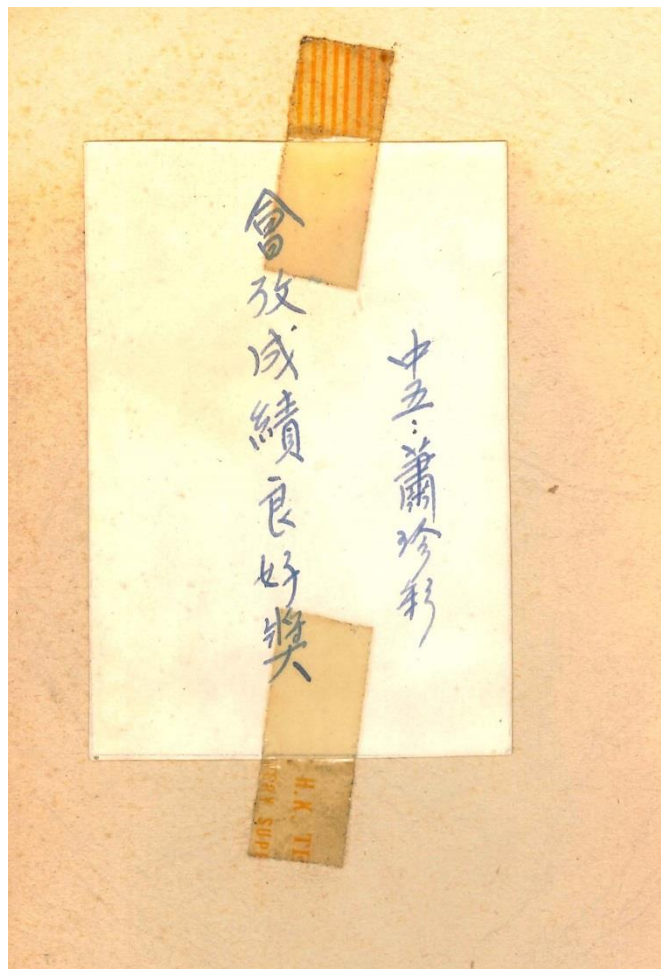 中五：蕭珍彩
會攷成績良好獎
H.K. TE
SUPP